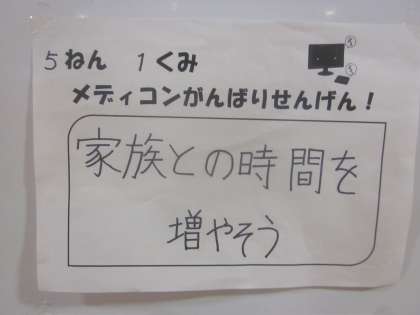 5ねん 1くみ
メディコンがんばりせんげん！
家族との時間を
増やそう